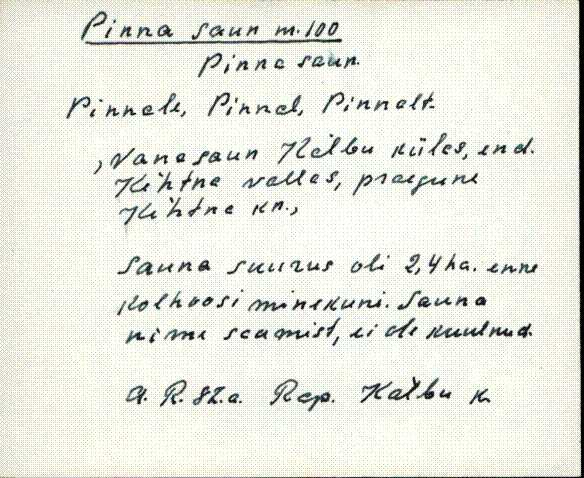 Pinna saun m.100
Pinna saun.
Pinnale, Pinnal, Pinnalt.
, Vana saun Kälbu küles, end.
Kehtna vallas, praegune
Kehtna kn.,
Sauna suurus oli 2,4 ha. enne
kolhoosi minekuni. Sauna
nime saamist, ei ole kuulnud.
A. R. 82.a. Rap. Kälbu k